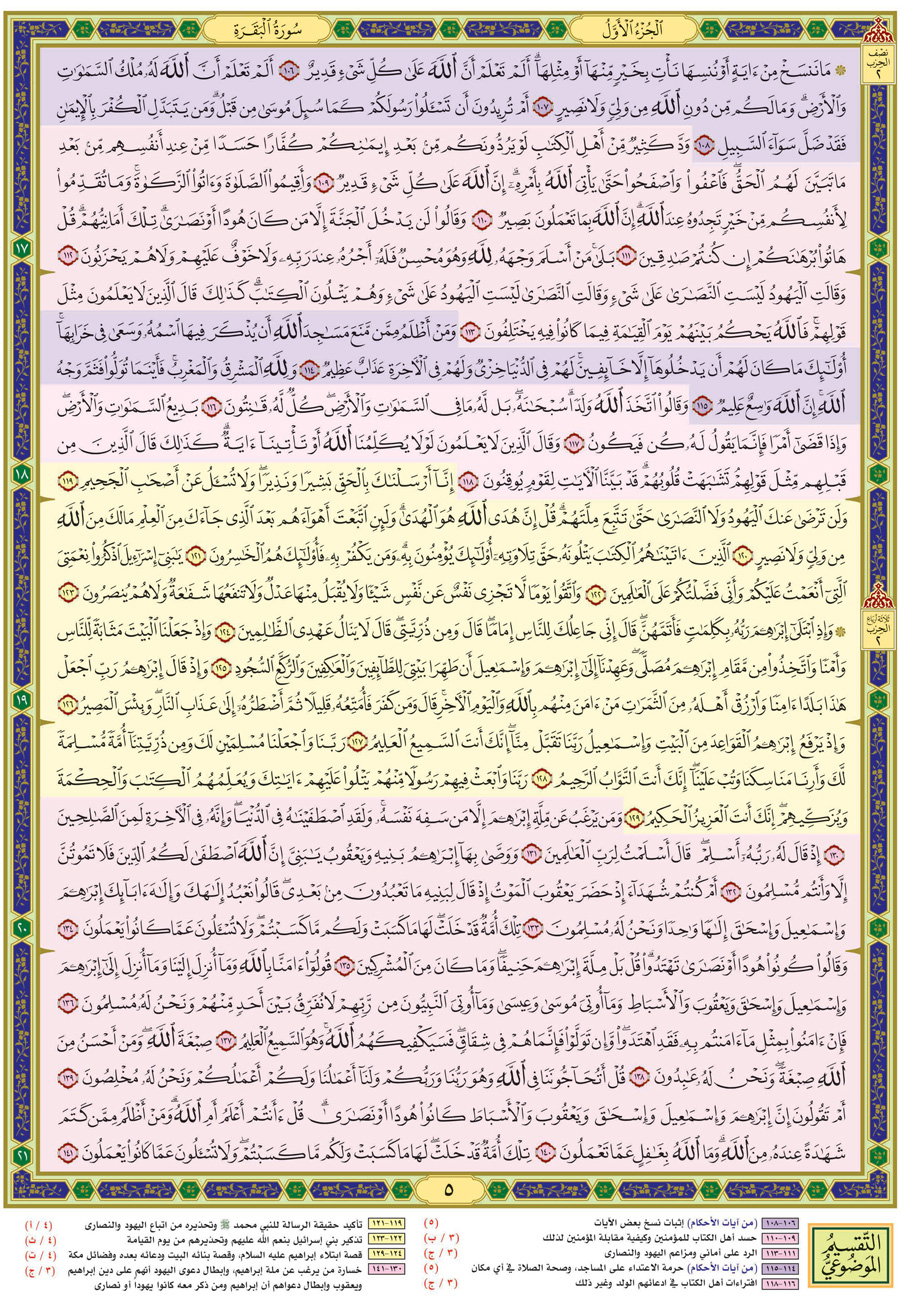 الجُزْءُ الأَوَّلُ
سُورَةُ الْبَقَرَةِ
نصف الحزب ٢
۞ مَا نَنسَخْ مِنْ ءَايَةٍ أَوْ نُنسِهَا نَأْتِ بِخَيْرٍ مِّنْهَآ أَوْ مِثْلِهَآ ۗ أَلَمْ تَعْلَمْ أَنَّ ٱللَّهَ عَلَىٰ كُلِّ شَىْءٍ قَدِيرٌ ١٠٦ أَلَمْ تَعْلَمْ أَنَّ ٱللَّهَ لَهُۥ مُلْكُ ٱلسَّمَٰوَٰتِ
وَٱلْأَرْضِ ۗ وَمَا لَكُم مِّن دُونِ ٱللَّهِ مِن وَلِىٍّ وَلَا نَصِيرٍ ١٠٧ أَمْ تُرِيدُونَ أَن تَسْـَٔلُوا۟ رَسُولَكُمْ كَمَا سُئِلَ مُوسَىٰ مِن قَبْلُ ۗ وَمَن يَتَبَدَّلِ ٱلْكُفْرَ بِٱلْإِيمَٰنِ
فَقَدْ ضَلَّ سَوَآءَ ٱلسَّبِيلِ ١٠٨ وَدَّ كَثِيرٌ مِّنْ أَهْلِ ٱلْكِتَٰبِ لَوْ يَرُدُّونَكُم مِّنۢ بَعْدِ إِيمَٰنِكُمْ كُفَّارًا حَسَدًا مِّنْ عِندِ أَنفُسِهِم مِّنۢ بَعْدِ
مَا تَبَيَّنَ لَهُمُ ٱلْحَقُّ ۖ فَٱعْفُوا۟ وَٱصْفَحُوا۟ حَتَّىٰ يَأْتِىَ ٱللَّهُ بِأَمْرِهِۦٓ ۗ إِنَّ ٱللَّهَ عَلَىٰ كُلِّ شَىْءٍ قَدِيرٌ ١٠٩ وَأَقِيمُوا۟ ٱلصَّلَوٰةَ وَءَاتُوا۟ ٱلزَّكَوٰةَ ۚ وَمَا تُقَدِّمُوا۟
لِأَنفُسِكُم مِّنْ خَيْرٍ تَجِدُوهُ عِندَ ٱللَّهِ ۗ إِنَّ ٱللَّهَ بِمَا تَعْمَلُونَ بَصِيرٌ ١١٠ وَقَالُوا۟ لَن يَدْخُلَ ٱلْجَنَّةَ إِلَّا مَن كَانَ هُودًا أَوْ نَصَٰرَىٰ ۗ تِلْكَ أَمَانِيُّهُمْ ۗ قُلْ
هَاتُوا۟ بُرْهَٰنَكُمْ إِن كُنتُمْ صَٰدِقِينَ ١١١ بَلَىٰ مَنْ أَسْلَمَ وَجْهَهُۥ لِلَّهِ وَهُوَ مُحْسِنٌ فَلَهُۥٓ أَجْرُهُۥ عِندَ رَبِّهِۦ وَلَا خَوْفٌ عَلَيْهِمْ وَلَا هُمْ يَحْزَنُونَ ١١٢
١٧
وَقَالَتِ ٱلْيَهُودُ لَيْسَتِ ٱلنَّصَٰرَىٰ عَلَىٰ شَىْءٍ وَقَالَتِ ٱلنَّصَٰرَىٰ لَيْسَتِ ٱلْيَهُودُ عَلَىٰ شَىْءٍ وَهُمْ يَتْلُونَ ٱلْكِتَٰبَ ۗ كَذَٰلِكَ قَالَ ٱلَّذِينَ لَا يَعْلَمُونَ مِثْلَ
قَوْلِهِمْ ۚ فَٱللَّهُ يَحْكُمُ بَيْنَهُمْ يَوْمَ ٱلْقِيَٰمَةِ فِيمَا كَانُوا۟ فِيهِ يَخْتَلِفُونَ ١١٣ وَمَنْ أَظْلَمُ مِمَّن مَّنَعَ مَسَٰجِدَ ٱللَّهِ أَن يُذْكَرَ فِيهَا ٱسْمُهُۥ وَسَعَىٰ فِى خَرَابِهَآ ۚ
أُو۟لَٰٓئِكَ مَا كَانَ لَهُمْ أَن يَدْخُلُوهَآ إِلَّا خَآئِفِينَ ۚ لَهُمْ فِى ٱلدُّنْيَا خِزْىٌ وَلَهُمْ فِى ٱلْءَاخِرَةِ عَذَابٌ عَظِيمٌ ١١٤ وَلِلَّهِ ٱلْمَشْرِقُ وَٱلْمَغْرِبُ ۚ فَأَيْنَمَا تُوَلُّوا۟ فَثَمَّ وَجْهُ
ٱللَّهِ ۚ إِنَّ ٱللَّهَ وَٰسِعٌ عَلِيمٌ ١١٥ وَقَالُوا۟ ٱتَّخَذَ ٱللَّهُ وَلَدًا ۗ سُبْحَٰنَهُۥ ۖ بَل لَّهُۥ مَا فِى ٱلسَّمَٰوَٰتِ وَٱلْأَرْضِ ۖ كُلٌّ لَّهُۥ قَٰنِتُونَ ١١٦ بَدِيعُ ٱلسَّمَٰوَٰتِ وَٱلْأَرْضِ ۖ
وَإِذَا قَضَىٰٓ أَمْرًا فَإِنَّمَا يَقُولُ لَهُۥ كُن فَيَكُونُ ١١٧ وَقَالَ ٱلَّذِينَ لَا يَعْلَمُونَ لَوْلَا يُكَلِّمُنَا ٱللَّهُ أَوْ تَأْتِينَآ ءَايَةٌ ۗ كَذَٰلِكَ قَالَ ٱلَّذِينَ مِن
قَبْلِهِم مِّثْلَ قَوْلِهِمْ ۘ تَشَٰبَهَتْ قُلُوبُهُمْ ۗ قَدْ بَيَّنَّا ٱلْءَايَٰتِ لِقَوْمٍ يُوقِنُونَ ١١٨ إِنَّآ أَرْسَلْنَٰكَ بِٱلْحَقِّ بَشِيرًا وَنَذِيرًا ۖ وَلَا تُسْـَٔلُ عَنْ أَصْحَٰبِ ٱلْجَحِيمِ ١١٩
١٨
وَلَن تَرْضَىٰ عَنكَ ٱلْيَهُودُ وَلَا ٱلنَّصَٰرَىٰ حَتَّىٰ تَتَّبِعَ مِلَّتَهُمْ ۗ قُلْ إِنَّ هُدَى ٱللَّهِ هُوَ ٱلْهُدَىٰ ۗ وَلَئِنِ ٱتَّبَعْتَ أَهْوَآءَهُم بَعْدَ ٱلَّذِى جَآءَكَ مِنَ ٱلْعِلْمِ ۙ مَا لَكَ مِنَ ٱللَّهِ
مِن وَلِىٍّ وَلَا نَصِيرٍ ١٢٠ ٱلَّذِينَ ءَاتَيْنَٰهُمُ ٱلْكِتَٰبَ يَتْلُونَهُۥ حَقَّ تِلَاوَتِهِۦٓ أُو۟لَٰٓئِكَ يُؤْمِنُونَ بِهِۦ ۗ وَمَن يَكْفُرْ بِهِۦ فَأُو۟لَٰٓئِكَ هُمُ ٱلْخَٰسِرُونَ ١٢١ يَٰبَنِىٓ إِسْرَٰٓءِيلَ ٱذْكُرُوا۟ نِعْمَتِىَ
ٱلَّتِىٓ أَنْعَمْتُ عَلَيْكُمْ وَأَنِّى فَضَّلْتُكُمْ عَلَى ٱلْعَٰلَمِينَ ١٢٢ وَٱتَّقُوا۟ يَوْمًا لَّا تَجْزِى نَفْسٌ عَن نَّفْسٍ شَيْـًٔا وَلَا يُقْبَلُ مِنْهَا عَدْلٌ وَلَا تَنفَعُهَا شَفَٰعَةٌ وَلَا هُمْ يُنصَرُونَ ١٢٣
ثلاثة أرباع الحزب ٢
۞ وَإِذِ ٱبْتَلَىٰٓ إِبْرَٰهِـۧمَ رَبُّهُۥ بِكَلِمَٰتٍ فَأَتَمَّهُنَّ ۖ قَالَ إِنِّى جَاعِلُكَ لِلنَّاسِ إِمَامًا ۖ قَالَ وَمِن ذُرِّيَّتِى ۖ قَالَ لَا يَنَالُ عَهْدِى ٱلظَّٰلِمِينَ ١٢٤ وَإِذْ جَعَلْنَا ٱلْبَيْتَ مَثَابَةً لِّلنَّاسِ
وَأَمْنًا وَٱتَّخِذُوا۟ مِن مَّقَامِ إِبْرَٰهِـۧمَ مُصَلًّى ۖ وَعَهِدْنَآ إِلَىٰٓ إِبْرَٰهِـۧمَ وَإِسْمَٰعِيلَ أَن طَهِّرَا بَيْتِىَ لِلطَّآئِفِينَ وَٱلْعَٰكِفِينَ وَٱلرُّكَّعِ ٱلسُّجُودِ ١٢٥ وَإِذْ قَالَ إِبْرَٰهِـۧمُ رَبِّ ٱجْعَلْ
هَٰذَا بَلَدًا ءَامِنًا وَٱرْزُقْ أَهْلَهُۥ مِنَ ٱلثَّمَرَٰتِ مَنْ ءَامَنَ مِنْهُم بِٱللَّهِ وَٱلْيَوْمِ ٱلْءَاخِرِ ۖ قَالَ وَمَن كَفَرَ فَأُمَتِّعُهُۥ قَلِيلًا ثُمَّ أَضْطَرُّهُۥٓ إِلَىٰ عَذَابِ ٱلنَّارِ ۖ وَبِئْسَ ٱلْمَصِيرُ ١٢٦
١٩
وَإِذْ يَرْفَعُ إِبْرَٰهِـۧمُ ٱلْقَوَاعِدَ مِنَ ٱلْبَيْتِ وَإِسْمَٰعِيلُ رَبَّنَا تَقَبَّلْ مِنَّآ ۖ إِنَّكَ أَنتَ ٱلسَّمِيعُ ٱلْعَلِيمُ ١٢٧ رَبَّنَا وَٱجْعَلْنَا مُسْلِمَيْنِ لَكَ وَمِن ذُرِّيَّتِنَآ أُمَّةً مُّسْلِمَةً
لَّكَ وَأَرِنَا مَنَاسِكَنَا وَتُبْ عَلَيْنَآ ۖ إِنَّكَ أَنتَ ٱلتَّوَّابُ ٱلرَّحِيمُ ١٢٨ رَبَّنَا وَٱبْعَثْ فِيهِمْ رَسُولًا مِّنْهُمْ يَتْلُوا۟ عَلَيْهِمْ ءَايَٰتِكَ وَيُعَلِّمُهُمُ ٱلْكِتَٰبَ وَٱلْحِكْمَةَ
وَيُزَكِّيهِمْ ۚ إِنَّكَ أَنتَ ٱلْعَزِيزُ ٱلْحَكِيمُ ١٢٩ وَمَن يَرْغَبُ عَن مِّلَّةِ إِبْرَٰهِـۧمَ إِلَّا مَن سَفِهَ نَفْسَهُۥ ۚ وَلَقَدِ ٱصْطَفَيْنَٰهُ فِى ٱلدُّنْيَا ۖ وَإِنَّهُۥ فِى ٱلْءَاخِرَةِ لَمِنَ ٱلصَّٰلِحِينَ
١٣٠ إِذْ قَالَ لَهُۥ رَبُّهُۥٓ أَسْلِمْ ۖ قَالَ أَسْلَمْتُ لِرَبِّ ٱلْعَٰلَمِينَ ١٣١ وَوَصَّىٰ بِهَآ إِبْرَٰهِـۧمُ بَنِيهِ وَيَعْقُوبُ يَٰبَنِىَّ إِنَّ ٱللَّهَ ٱصْطَفَىٰ لَكُمُ ٱلدِّينَ فَلَا تَمُوتُنَّ
إِلَّا وَأَنتُم مُّسْلِمُونَ ١٣٢ أَمْ كُنتُمْ شُهَدَآءَ إِذْ حَضَرَ يَعْقُوبَ ٱلْمَوْتُ إِذْ قَالَ لِبَنِيهِ مَا تَعْبُدُونَ مِنۢ بَعْدِى قَالُوا۟ نَعْبُدُ إِلَٰهَكَ وَإِلَٰهَ ءَابَآئِكَ إِبْرَٰهِـۧمَ
وَإِسْمَٰعِيلَ وَإِسْحَٰقَ إِلَٰهًا وَٰحِدًا وَنَحْنُ لَهُۥ مُسْلِمُونَ ١٣٣ تِلْكَ أُمَّةٌ قَدْ خَلَتْ ۖ لَهَا مَا كَسَبَتْ وَلَكُم مَّا كَسَبْتُمْ ۖ وَلَا تُسْـَٔلُونَ عَمَّا كَانُوا۟ يَعْمَلُونَ ١٣٤
٢٠
وَقَالُوا۟ كُونُوا۟ هُودًا أَوْ نَصَٰرَىٰ تَهْتَدُوا۟ ۗ قُلْ بَلْ مِلَّةَ إِبْرَٰهِـۧمَ حَنِيفًا ۖ وَمَا كَانَ مِنَ ٱلْمُشْرِكِينَ ١٣٥ قُولُوٓا۟ ءَامَنَّا بِٱللَّهِ وَمَآ أُنزِلَ إِلَيْنَا وَمَآ أُنزِلَ إِلَىٰٓ إِبْرَٰهِـۧمَ
وَإِسْمَٰعِيلَ وَإِسْحَٰقَ وَيَعْقُوبَ وَٱلْأَسْبَاطِ وَمَآ أُوتِىَ مُوسَىٰ وَعِيسَىٰ وَمَآ أُوتِىَ ٱلنَّبِيُّونَ مِن رَّبِّهِمْ لَا نُفَرِّقُ بَيْنَ أَحَدٍ مِّنْهُمْ وَنَحْنُ لَهُۥ مُسْلِمُونَ ١٣٦
فَإِنْ ءَامَنُوا۟ بِمِثْلِ مَآ ءَامَنتُم بِهِۦ فَقَدِ ٱهْتَدَوا۟ ۖ وَّإِن تَوَلَّوْا۟ فَإِنَّمَا هُمْ فِى شِقَاقٍ ۖ فَسَيَكْفِيكَهُمُ ٱللَّهُ ۚ وَهُوَ ٱلسَّمِيعُ ٱلْعَلِيمُ ١٣٧ صِبْغَةَ ٱللَّهِ ۖ وَمَنْ أَحْسَنُ مِنَ
ٱللَّهِ صِبْغَةً ۖ وَنَحْنُ لَهُۥ عَٰبِدُونَ ١٣٨ قُلْ أَتُحَآجُّونَنَا فِى ٱللَّهِ وَهُوَ رَبُّنَا وَرَبُّكُمْ وَلَنَآ أَعْمَٰلُنَا وَلَكُمْ أَعْمَٰلُكُمْ وَنَحْنُ لَهُۥ مُخْلِصُونَ ١٣٩
أَمْ تَقُولُونَ إِنَّ إِبْرَٰهِـۧمَ وَإِسْمَٰعِيلَ وَإِسْحَٰقَ وَيَعْقُوبَ وَٱلْأَسْبَاطَ كَانُوا۟ هُودًا أَوْ نَصَٰرَىٰ ۗ قُلْ ءَأَنتُمْ أَعْلَمُ أَمِ ٱللَّهُ ۗ وَمَنْ أَظْلَمُ مِمَّن كَتَمَ
شَهَٰدَةً عِندَهُۥ مِنَ ٱللَّهِ ۗ وَمَا ٱللَّهُ بِغَٰفِلٍ عَمَّا تَعْمَلُونَ ١٤٠ تِلْكَ أُمَّةٌ قَدْ خَلَتْ ۖ لَهَا مَا كَسَبَتْ وَلَكُم مَّا كَسَبْتُمْ ۖ وَلَا تُسْـَٔلُونَ عَمَّا كَانُوا۟ يَعْمَلُونَ ١٤١
٢١
٥
التَّقسِيمُ
المَوضُوعِيُّ
١٠٦-١٠٨ (من آيات الأحكام) إثبات نسخ بعض الآيات (٥)
١٠٩-١١٠ حسد أهل الكتاب للمؤمنين وكيفية مقابلة المؤمنين لذلك (٣ / ب)
١١١-١١٣ الرد على أماني ومزاعم اليهود والنصارى (٣ / ج)
١١٤-١١٥ (من آيات الأحكام) حرمة الاعتداء على المساجد، وصحة الصلاة في أي مكان (٥)
١١٦-١١٨ افتراءات أهل الكتاب في ادعائهم الولد وغير ذلك (٣ / ج)
١١٩-١٢١ تأكيد حقيقة الرسالة للنبي محمد ﷺ وتحذيره من اتباع اليهود والنصارى (٤ / أ)
١٢٢-١٢٣ تذكير بني إسرائيل بنعم الله عليهم وتحذيرهم من يوم القيامة (٤ / ث)
١٢٤-١٢٩ قصة ابتلاء إبراهيم عليه السلام، وقصة بنائه البيت ودعائه بعده وفضائل مكة (٤ / ت)
١٣٠-١٤١ خسارة من يرغب عن ملة إبراهيم، وإبطال دعوى اليهود أنهم على دين إبراهيم (٣ / ج)
ويعقوب وإبطال دعواهم أن إبراهيم ومن ذكر معه كانوا يهوداً أو نصارى